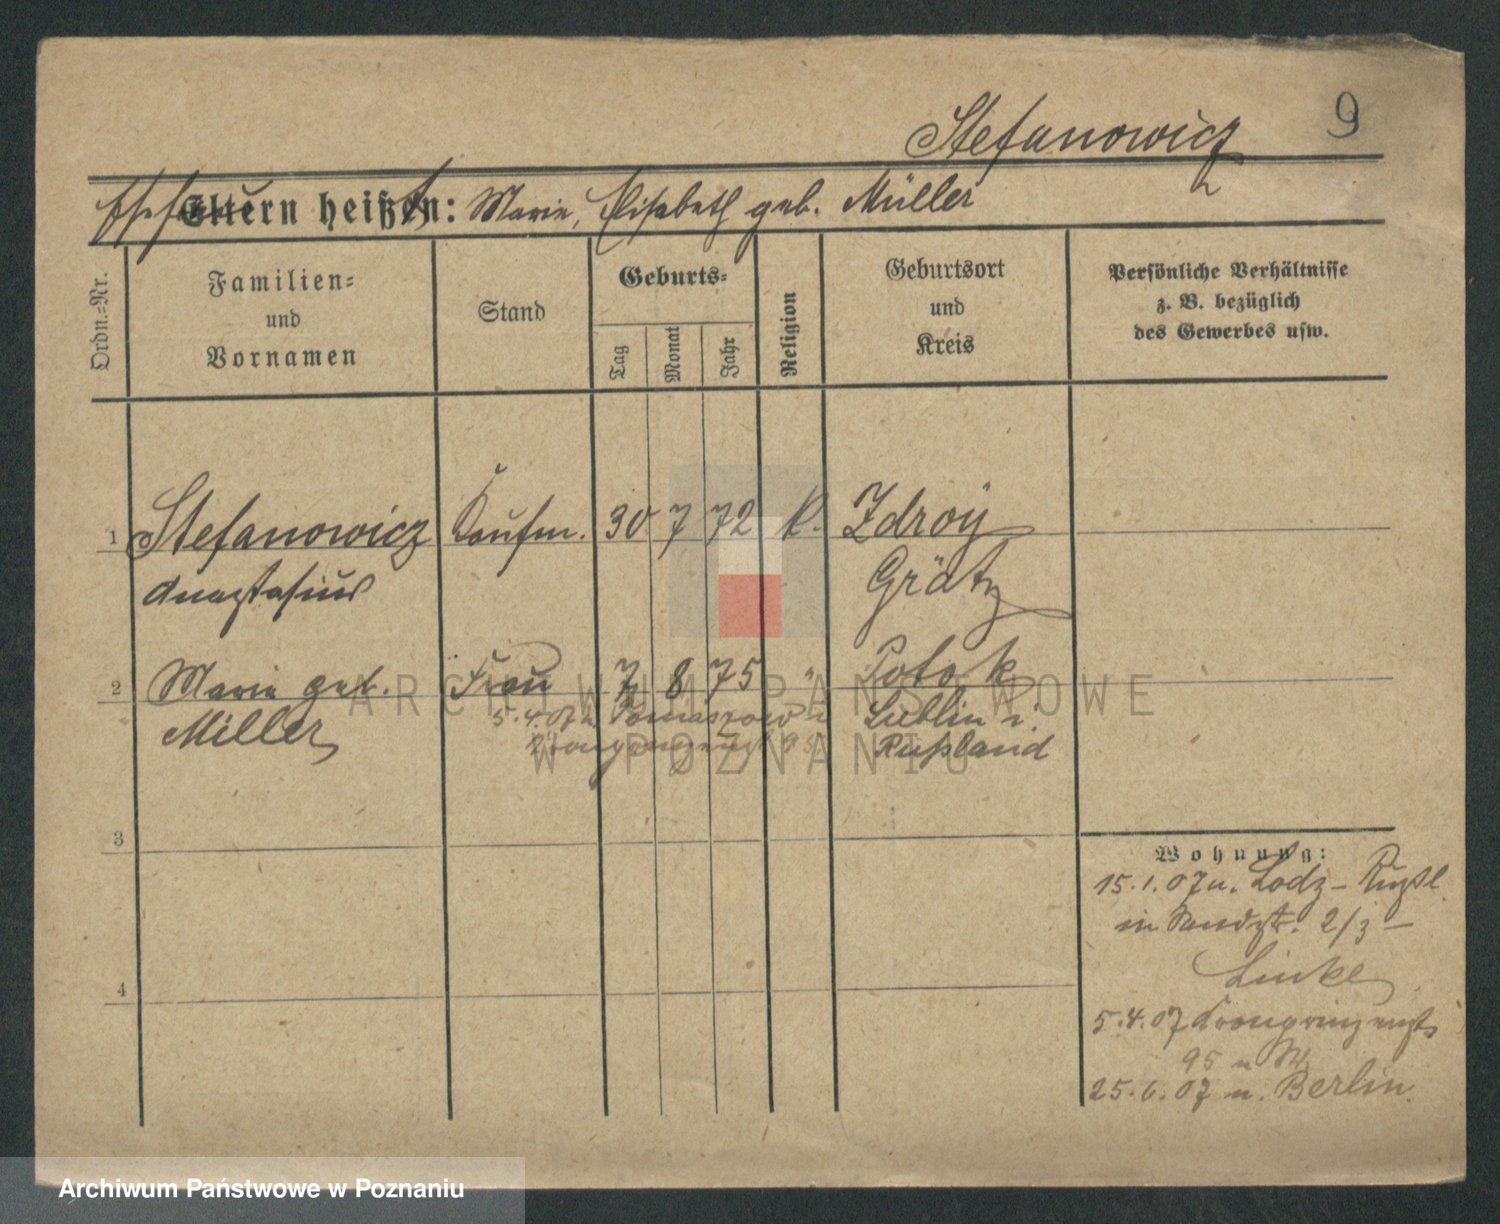 Stefanowicz 9
Ehefrau Eltern heißen: Marie, Elisabeth geb. Müller
Ordn.-Nr.
Familien-
und
Vornamen
Stand
Geburts-
Tag
Monat
Jahr
Religion
Geburtsort
und
Kreis
Persönliche Verhältnisse
z. B. bezüglich
des Gewerbes usw.
1 Stefanowicz Kaufm. 30 7 72 k. Zdroÿ
Anastasius Grätz
2 Marie geb. Frau 7 8 75 " Potok
Miller 5.4.07 n. Tomaszow i Lublin i.
Kronprinzenst 95 Rußland
3
4
Wohnung:
15.1.07 n. Lodz - Rußl.
in 2/3 -
Linke
5.4.07 Kronprinzenst
95 n
25.6.07 n. Berlin.
ARCHIWUM PAŃSTWOWE
W POZNANIU
Archiwum Państwowe w Poznaniu